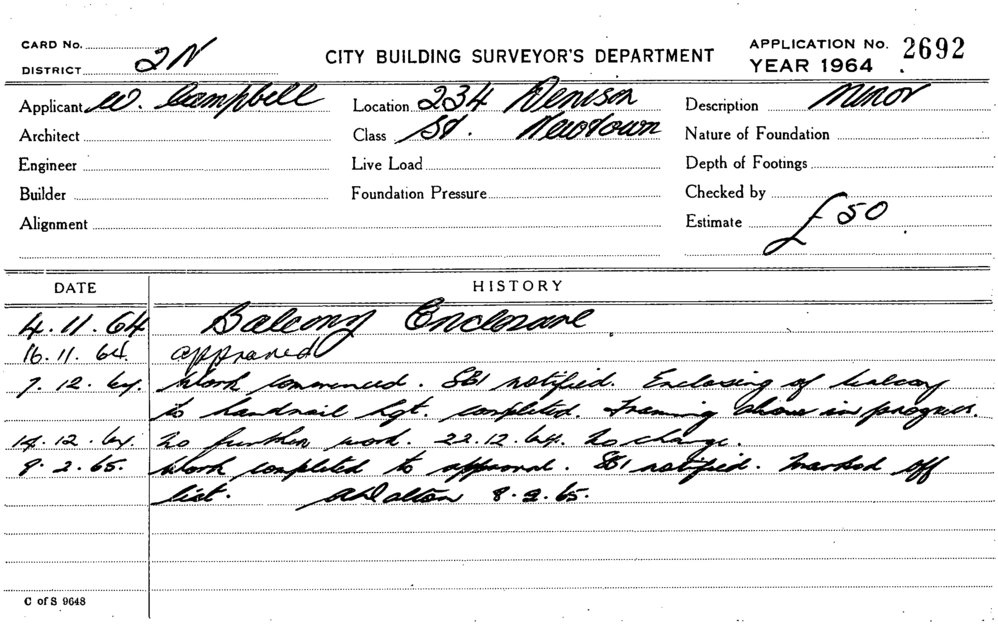 CARD No.
DISTRICT 2N
CITY BUILDING SURVEYOR'S DEPARTMENT
APPLICATION No. 2692
YEAR 1964
Applicant W. Campbell
Location 234 Denison
Description Minor
Architect
Class St. Newtown
Nature of Foundation
Engineer
Live Load
Depth of Footings
Builder
Foundation Pressure
Checked by
Alignment
Estimate £50
DATE
HISTORY
4.11.64 Balcony Enclosure
16.11.64. approved
7.12.64. Work commenced. SBI notified. Enclosing of balcony
to handrail hgt. completed. Framing above in progress.
14.12.64. No further work. 22.12.64. No change.
8.2.65. Work completed to approval. SBI notified. Marked off
list. A Dalton 8.2.65.
C of S 9648